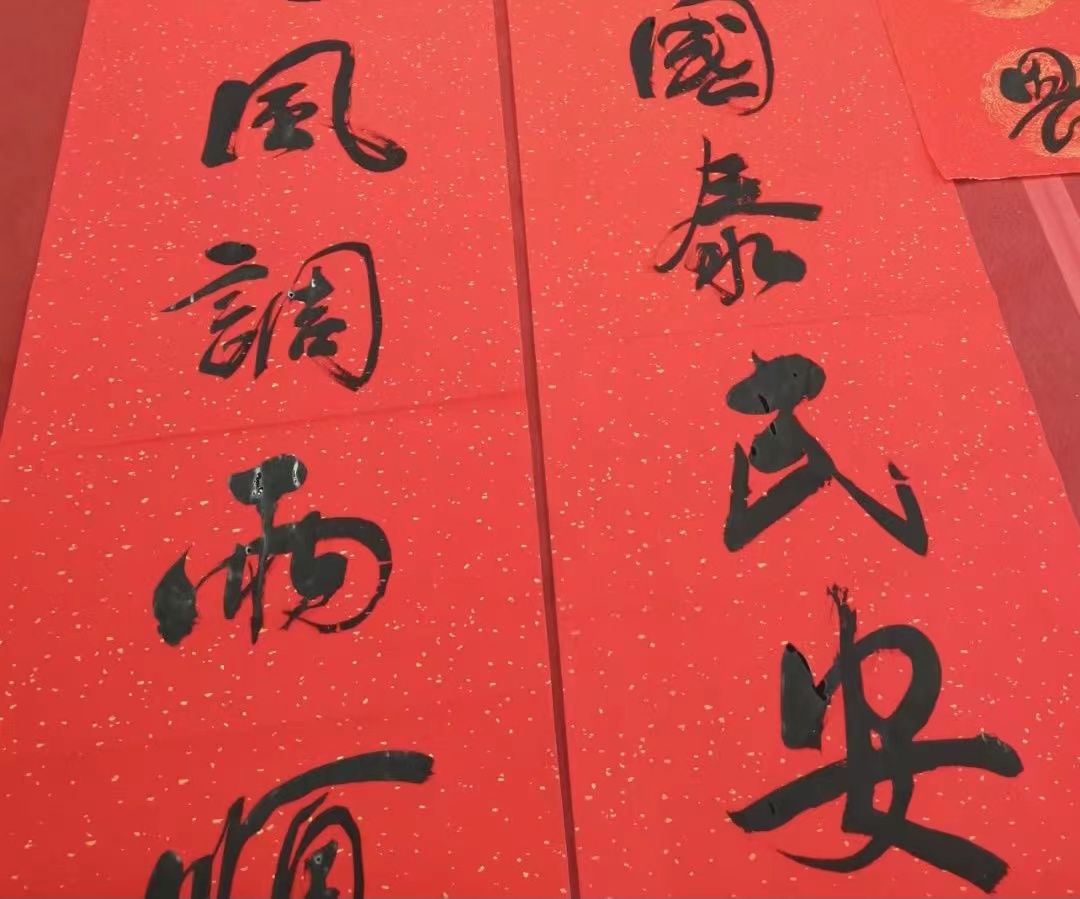 國泰民安
風調雨順